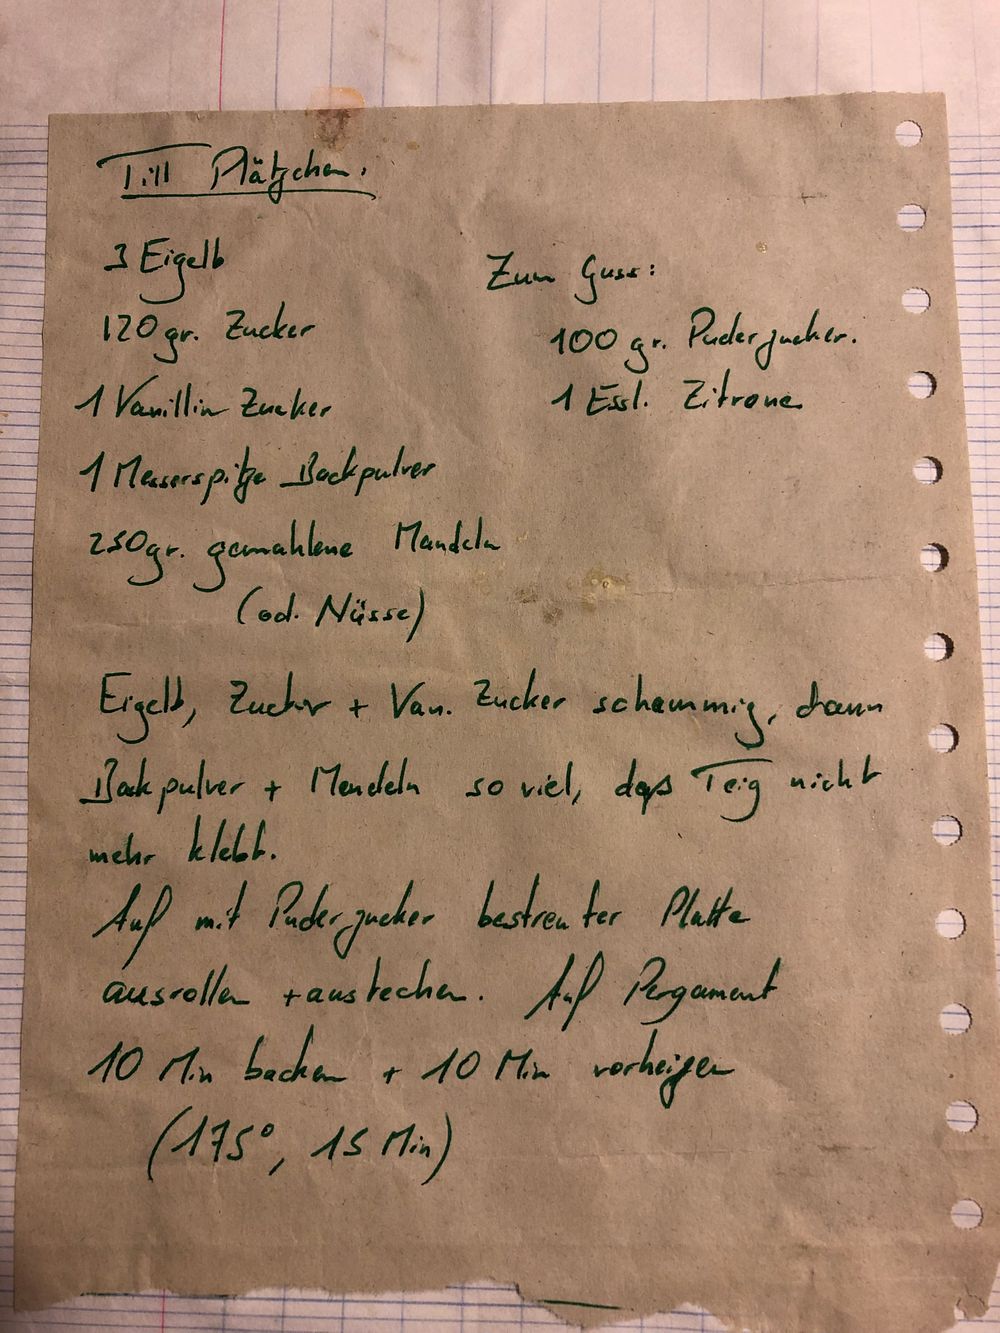 Till Plätzchen.
3 Eigelb
120 gr. Zucker
1 Vanillin Zucker
1 Messerspitze Backpulver
250 gr. gemahlene Mandeln
(od. Nüsse)
Zum Guss:
100 gr. Puderzucker.
1 Essl. Zitrone
Eigelb, Zucker + Van. Zucker schaummig, dann
Backpulver + Mandeln so viel, daß Teig nicht
mehr klebt.
Auf mit Puderzucker bestreuter Platte
ausrollen + ausstechen. Auf Pergament
10 Min backen + 10 Min vorheizen
(175°, 15 Min)